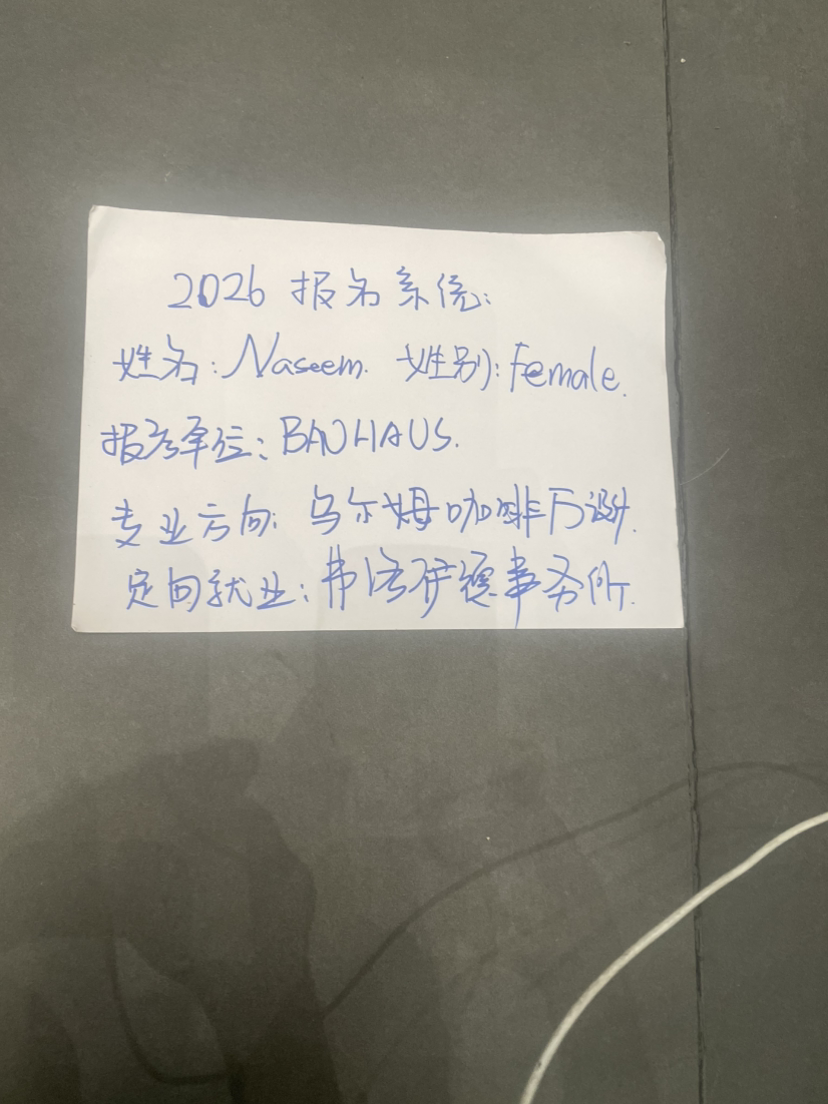 2026 报名系统:
姓名: Naseem. 性别: Female.
报考单位: BAUHAUS.
专业方向: 乌尔姆咖啡厅设计.
定向就业: 事务所.